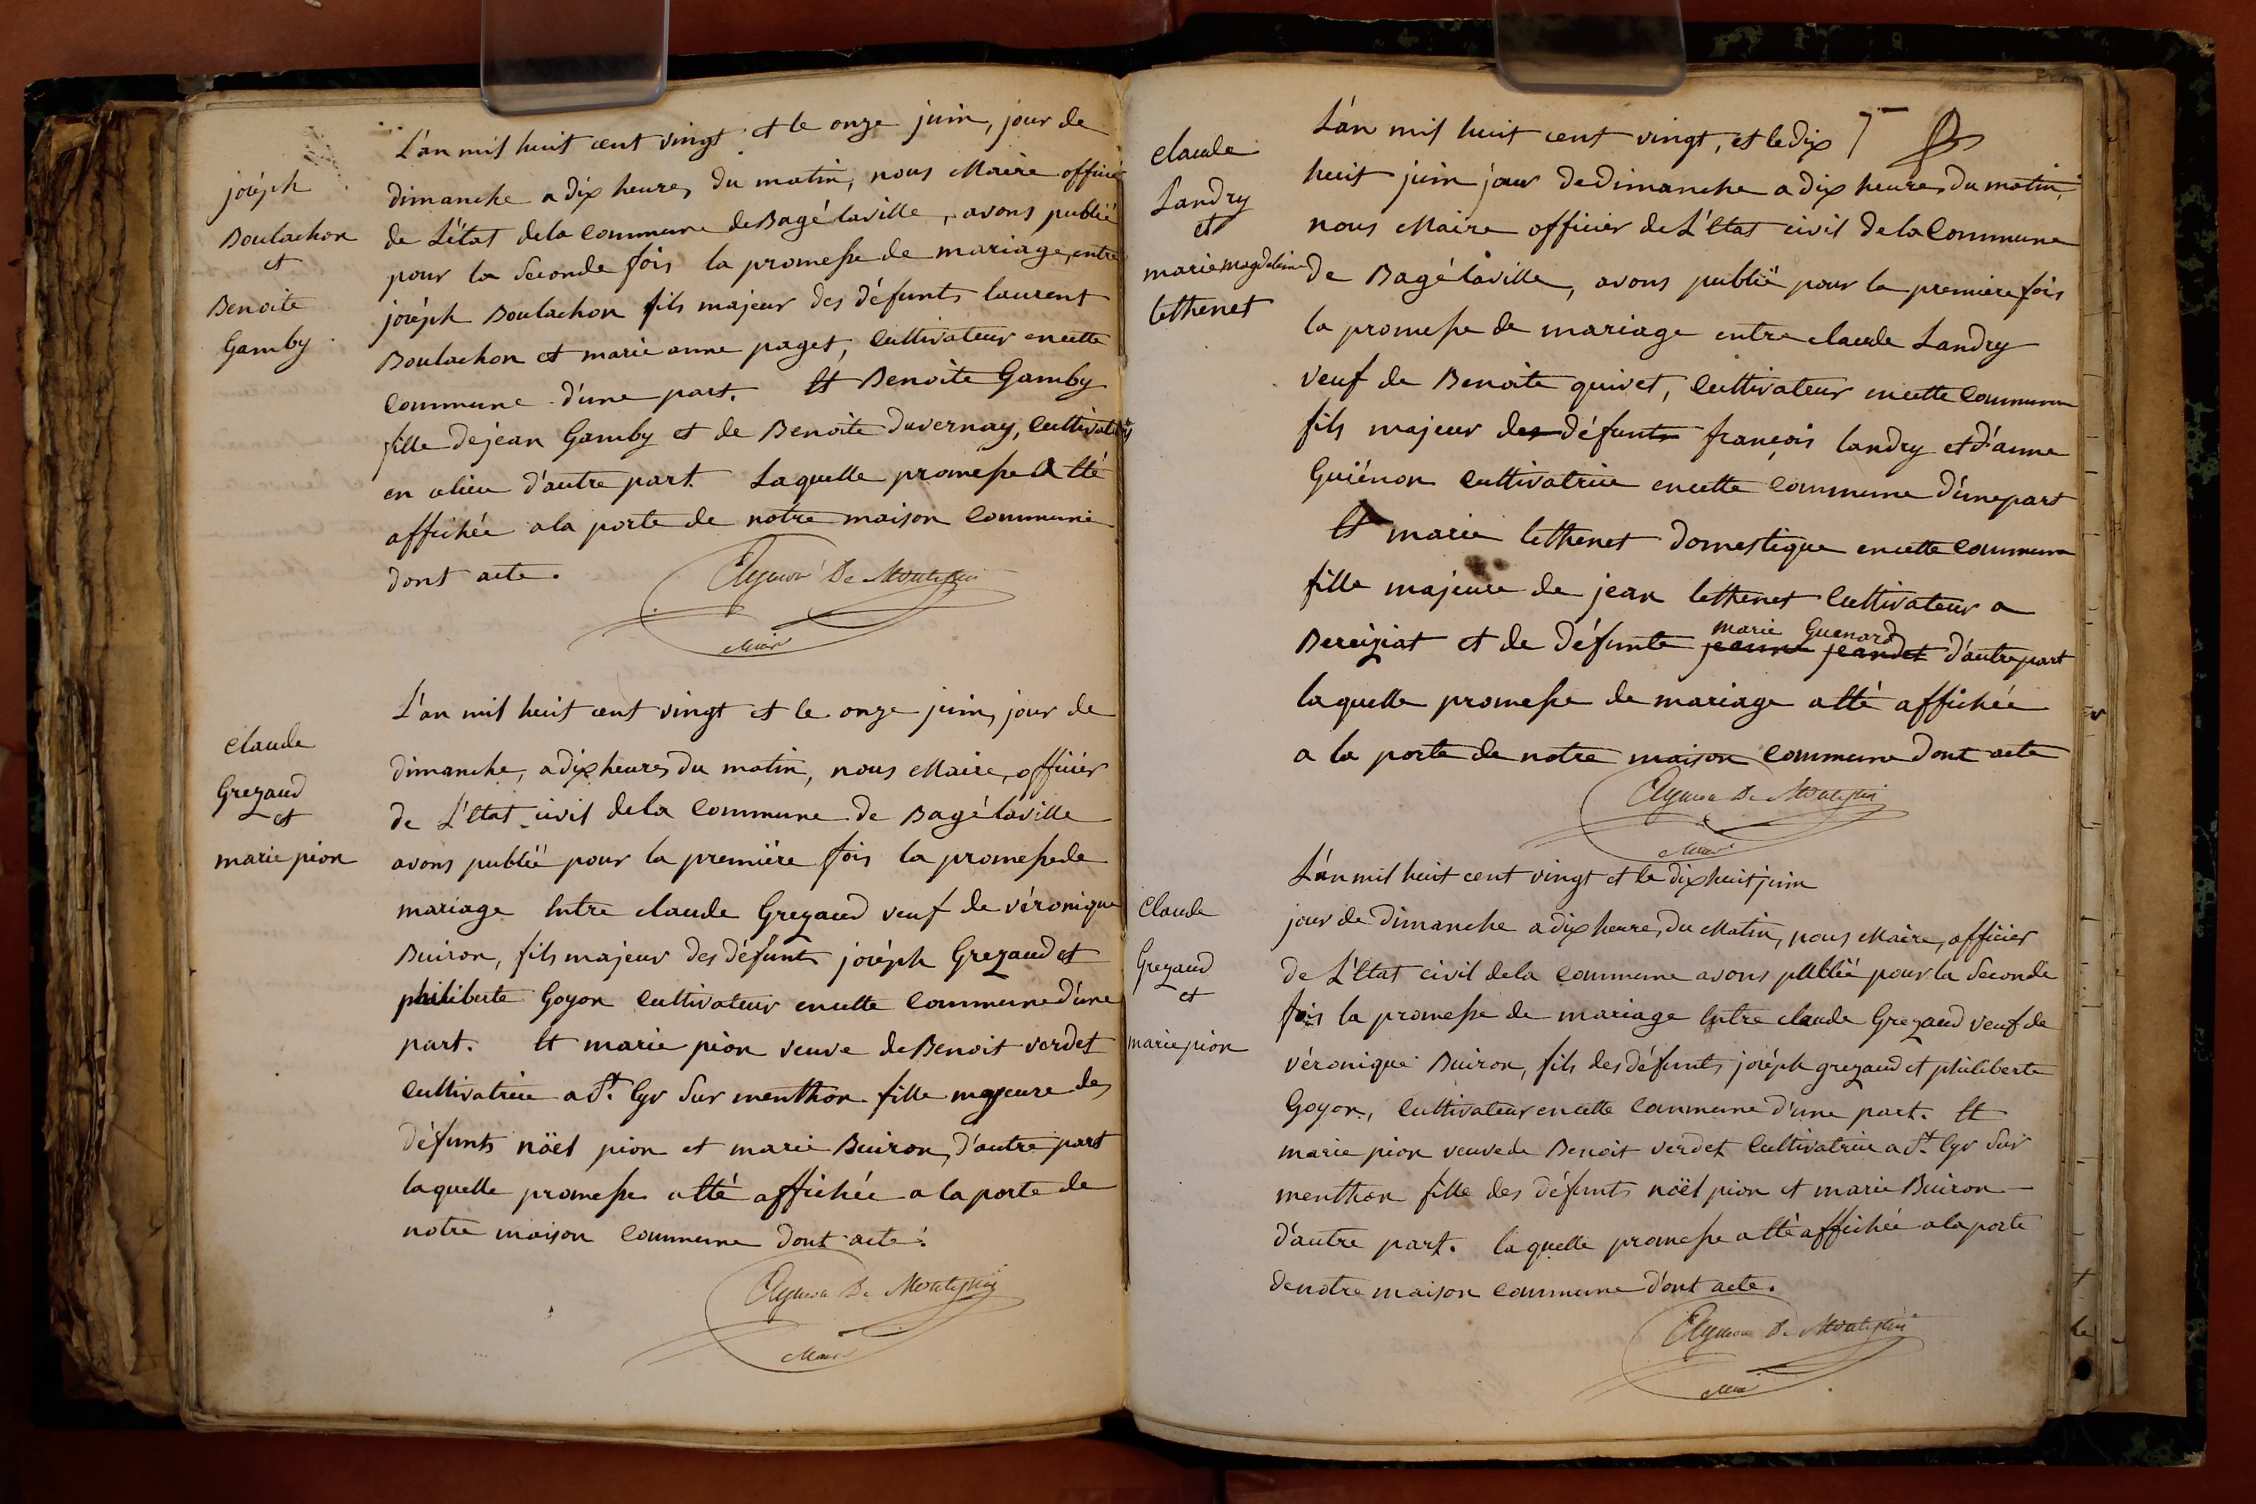 joséph
Boulachon
et
Benoite
Gamby
L'an mil huit cent vingt et le onze juin, jour de
dimanche a dix heures du matin, nous Maire officier
de L'état dela Commune de Bagé laville, avons publié
pour la Seconde fois la promesse de mariage, entre
joséph Boulachon fils majeur des défunts laurent
Boulachon et marie anne paget, Cultivateur encette
Commune d'une part. Et Benoite Gamby
fille de jean Gamby et de Benoite duvernay, Cultivateurs
en celieu d'autre part. Laquelle promesse a Eté
affichée ala porte de notre maison Commune
dont acte.
Maire
claude
Grezaud
et
marie pion
L'an mil huit cent vingt et le onze juin, jour de
dimanche, a dix heures du matin, nous Maire, officier
de L'Etat civil dela Commune de Bagé laville
avons publié pour la première fois la promesse de
mariage Entre claude Grezaud veuf de véronique
Buiron, fils majeur des défunts joséph Grezaud et
philiberte Goyon Cultivateur encette Commune d'une
part. Et marie pion veuve de Benoit verdet
Cultivatrice a St. Cyr Sur menthon fille majeure des
défunts nöel pion et marie Buiron, d'autre part
laquelle promesse a Eté affichée a la porte de
notre maison Commune dont acte.
Maire
claude
Landry
et
marie magdeleine
Cethenet
L'an mil huit cent vingt, et le dix
huit juin jour de dimanche a dix heures du matin,
nous Maire officier de L'Etat civil dela Commune
de Bagé laville, avons publié pour la premiere fois
la promesse de mariage entre claude Landry
veuf de Benoite quivet, Cultivateur encette Commune
fils majeur des défunts françois landry et d'anne
Guiénon Cultivatrice encette Commune d'une part
Et marie Cethenet domestique encette Commune
fille majeure de jean Cethenet Cultivateur a
marie Guenard
Bereiziat et de défunte jeanne jeandet d'autre part
laquelle promesse de mariage a Eté affichée
a la porte de notre maison Commune dont acte
Maire
Claude
Grezaud
et
marie pion
L'an mil huit cent vingt et le dix huit juin
jour de dimanche a dix heures du Matin, nous Maire, officier
de L'Etat civil dela Commune avons publié pour la Seconde
fois la promesse de mariage Entre claude Grezaud veuf de
véronique Buiron, fils des défunts joséph grezaud et philiberte
Goyon, Cultivateur encette Commune d'une part. Et
marie pion veuve de Benoit verdet Cultivatrice a St. Cyr Sur
menthon fille des défunts nöel pion et marie Buiron
d'autre part. laquelle promesse a Eté affichée ala porte
de notre maison Commune d'ont acte.
Maire